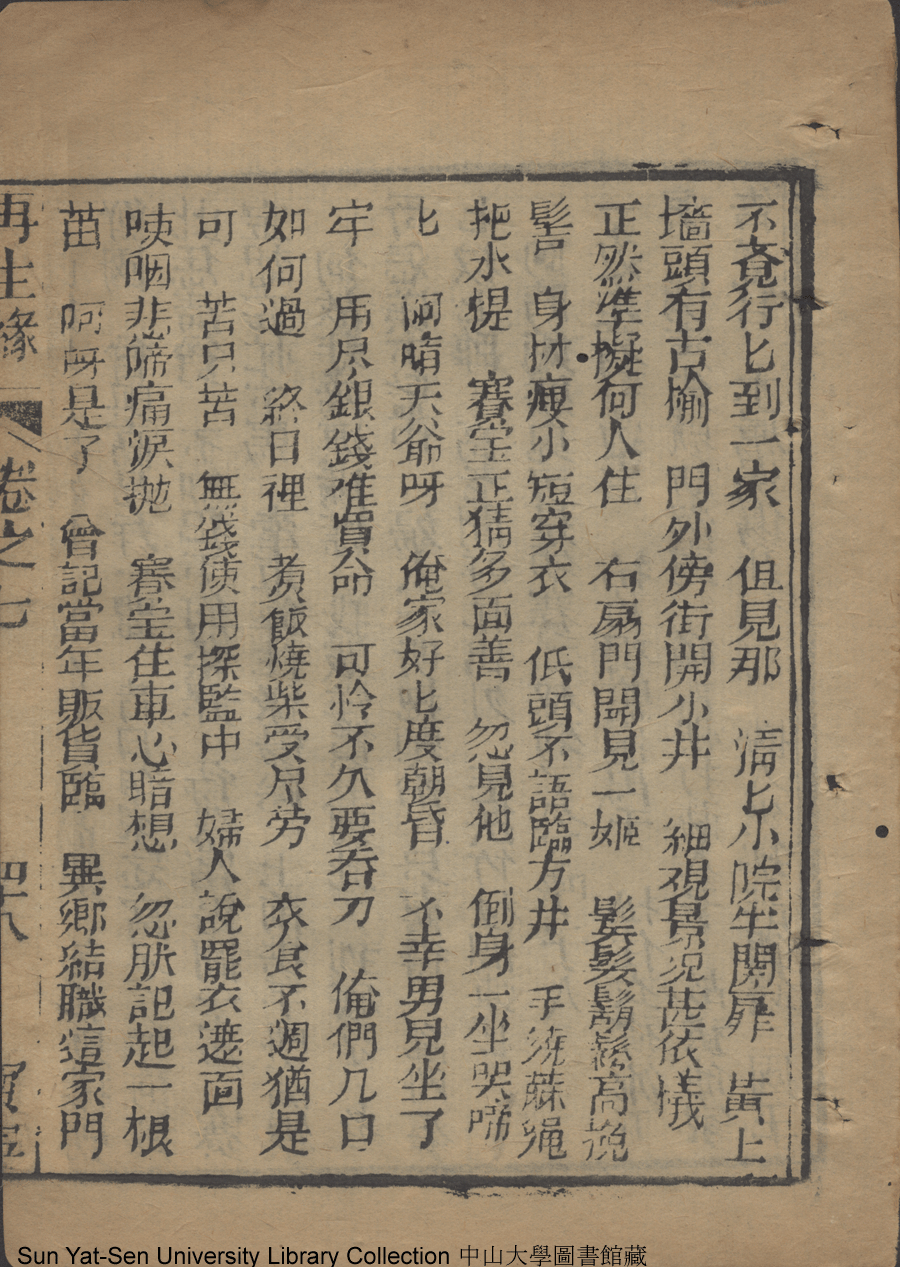 不竟行匕到一家 但見那 淸匕小院半開扉 黃土
墻頭有古榆 門外傍街開小井 細观景况甚依㑶
正然準擬何人住 右扇門開見一姬 髮髮鬅鬆高挽
髻 身材瘦小短穿衣 低頭不語臨方井 手繞蔴繩
把水提 賽金正猜多面善 忽見他 倒身一坐哭啼
匕 阿唷天爺呀 俺家好匕度朝昏 不幸男兒坐了
牢 用尽銀錢难買命 可怜不久要吞刀 俺們几口
如何過 終日裡 煑飯燒柴受尽劳 衣食不週猶是
可 苦只苦 無錢使用探監中 婦人說罷衣遮面
咦咽悲啼痛淚拋 賽金住車心暗想 忽肰記起一根
苗 呵呀是了 曾記當年販貨臨 異鄉結職這家門
再生緣 卷之七 四十八
Sun Yat-Sen University Library Collection 中山大學圖書館藏